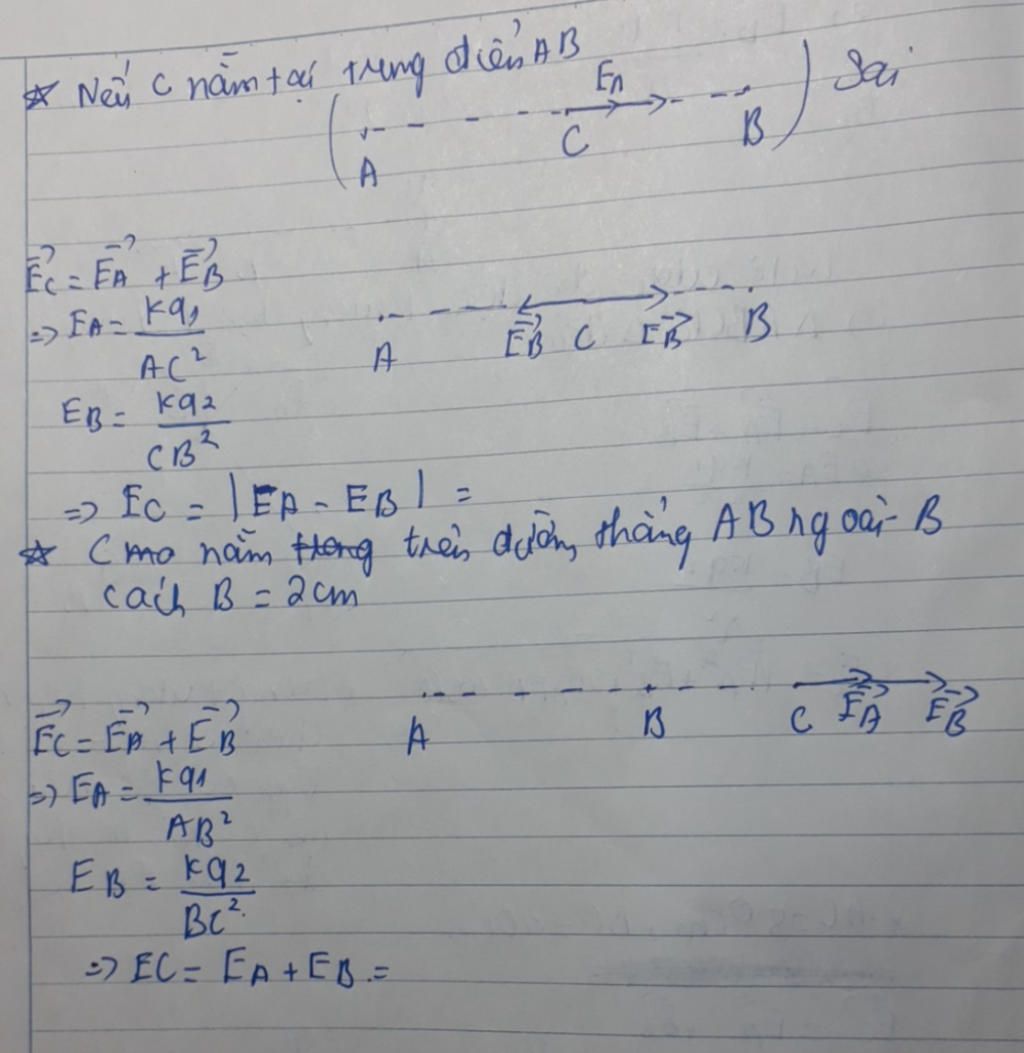 ☆ Nếu C nằm tại trung điểm AB
( A C E_A B ) Sai
\vec{E_C} = \vec{E_A} + \vec{E_B}
=> E_A = kq_1 / AC^2
A \vec{E_B} C \vec{E_B} B
E_B = kq_2 / CB^2
=> E_C = |E_A - E_B| =
☆ C nằm trên đường thẳng AB ngoài B
cách B = 2cm
A B C \vec{E_A} \vec{E_B}
\vec{E_C} = \vec{E_A} + \vec{E_B}
=> E_A = kq_1 / AB^2
E_B = kq_2 / BC^2
=> EC = E_A + E_B =